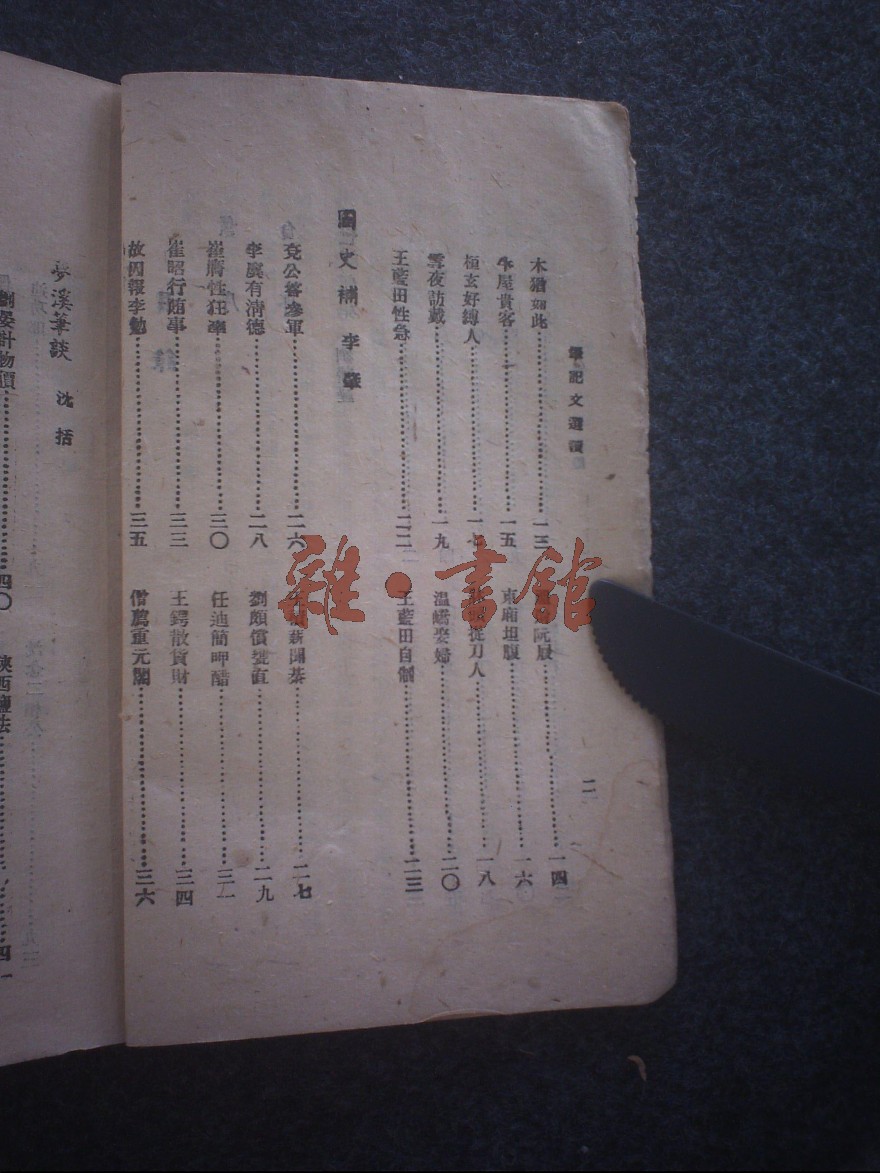 筆記文選讀
二
木猶如此……一三
阮屐……一四
牛屋貴客……一五
東廂坦腹……一六
桓玄好縛人……一七
從刀人……一八
雪夜訪戴……一九
溫嶠娶婦……二〇
王藍田性急……二二
王藍田自制……二三
國史補 李肇
兗公答參軍……二六
王積薪聞棊……二七
李廙有清德……二八
劉頗償甕直……二九
崔膺性狂率……三〇
任迪簡呷醋……三一
崔昭行賄事……三三
王鍔散貨財……三四
故囚報李勉……三五
僧薦重元閣……三六
夢溪筆談 沈括
劉晏計物價……四〇
陝西鹽法……四一
雜·書館